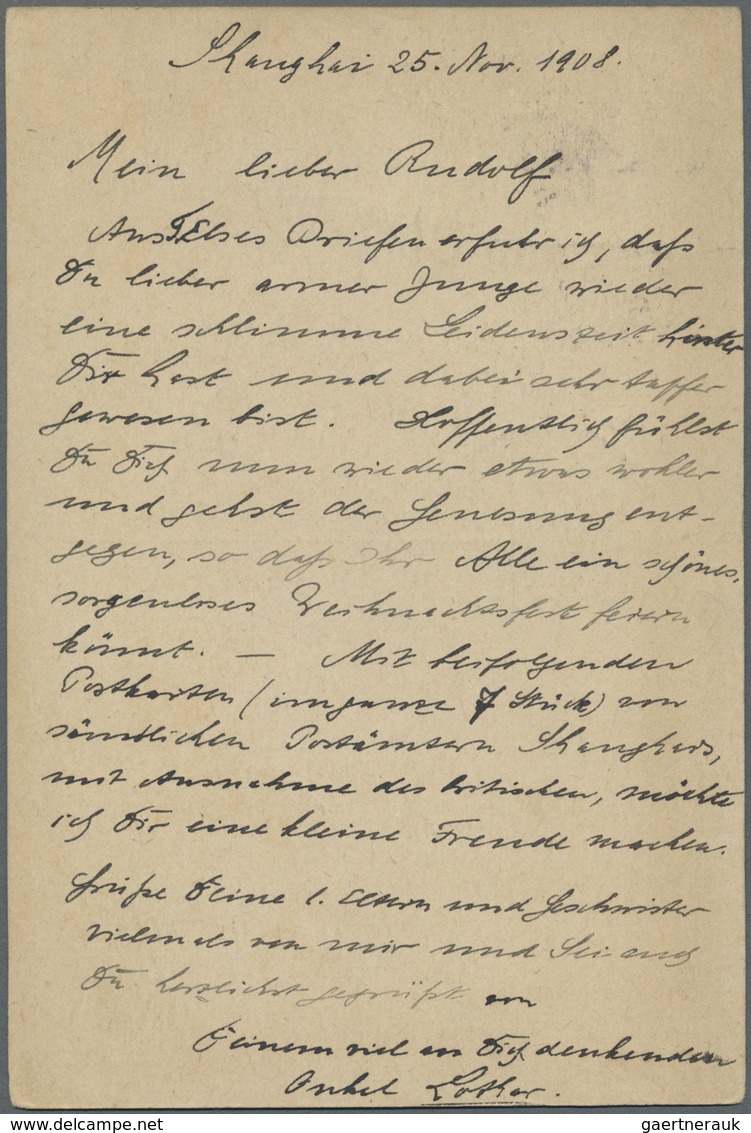 Shanghai 25. Nov. 1908.
Mein lieber Rudolf
Aus Elses Briefen erfuhr ich, daß
Du lieber armer Junge wieder
eine schlimme Leidenszeit hinter
Dir hast und dabei sehr tapfer
gewesen bist. Hoffentlich fühlst
Du Dich nun wieder etwas wohler
und gehst der Genesung ent-
gegen, so daß Ihr Alle ein schönes,
sorgenloses Weihnachtsfest feiern
könnt. — Mit beifolgenden
Postkarten (im ganze 7 Stück) von
sämtlichen Postämtern Shanghais,
mit Ausnahme des britischen, möchte
ich Dir eine kleine Freude machen.
Grüße Deine l. Eltern und Geschwister
vielmals von mir und Sei auch
Du herzlichst gegrüßt von
Deinem viel an Dich denkenden
Onkel Lothar.
gaertnerauk